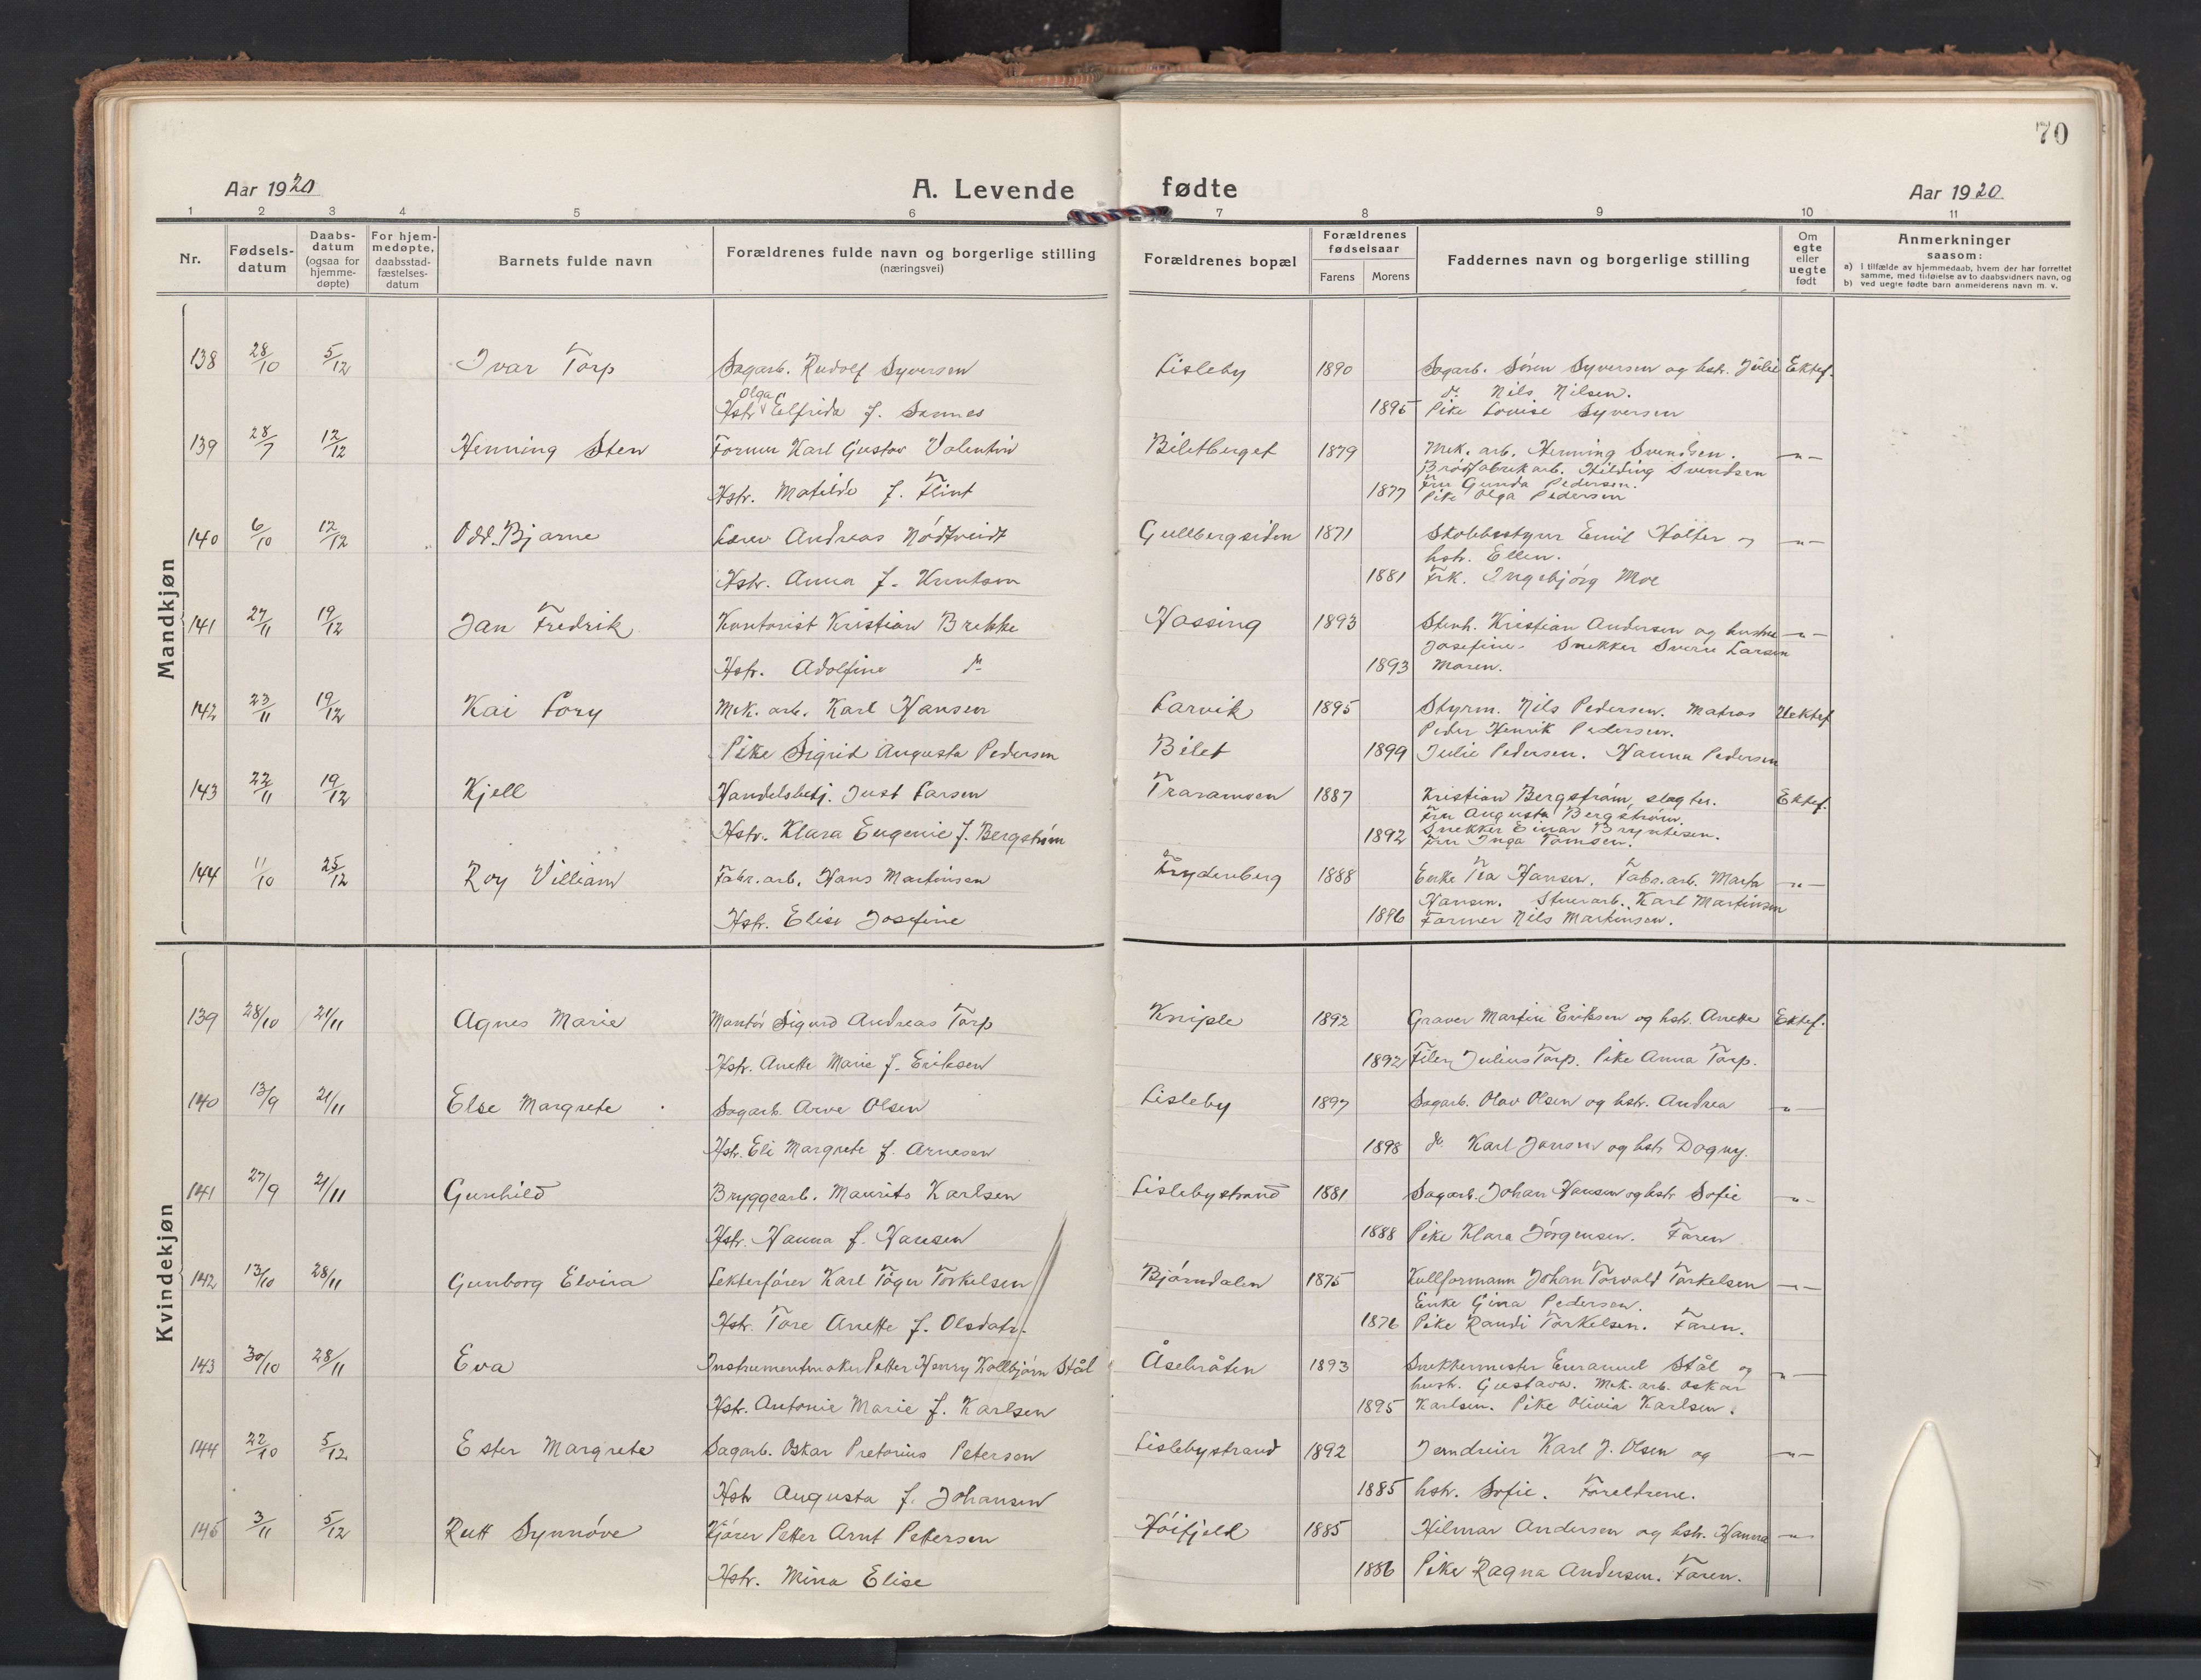 70
Aar 1920
A. Levende fødte
Aar 1920
1 2 3 4 5 6 7 8 9 10 11
Nr.
Fødsels-
datum
Daabs-
datum
(ogsaa for
hjemme-
døpte)
For hjem-
medøpte,
daabsstad-
fæstelses-
datum
Barnets fulde navn
Forældrenes fulde navn og borgerlige stilling
(næringsvei)
Forældrenes bopæl
Forældrenes
fødselsaar
Farens Morens
Faddernes navn og borgerlige stilling
Om
egte
eller
uegte
født
Anmerkninger
saasom:
a) I tilfælde av hjemmedaab, hvem der har forrettet
samme, med tilføielse av to daabsvidners navn, og
b) ved uegte fødte barn anmelderens navn m. v.
Mandkjøn
138 28/10 5/12 Ivar Torp Sagarb. Rudolf Syversen Lisleby 1890 Sagarb. Søren Syversen og hstr. Julie Ektef.
Olga
do. Nils Nilsen.
Hstr Elfrida f. Sannes 1895 Pike Lovise Syversen
139 28/7 12/12 Henning Sten Former Karl Gustav Valentin Biletberget 1879 Mek. arb. Henning Svendsen. —"—
Brødfabrikarb. Hilding Svendsen
Fru Gunda Pedersen.
Hstr. Matilde f. Flint 1877 Pike Olga Pedersen
140 6/10 12/12 Odd Bjarne Lærer Andreas Nødtveidt Gullbergsiden 1871 Skolebestyrer Emil Holter og —"—
hstr. Ellen.
Hstr. Anna f. Knutsen 1881 Frk. Ingebjørg Moe
141 27/11 19/12 Jan Fredrik Kontorist Kristian Brekke Hassing 1893 Stenh. Kristian Andersen og hustru —"—
Josefine. Snekker Sverre Larsen
Hstr. Adolfine do 1893 Moren.
142 23/11 19/12 Kai Lory Mek. arb. Karl Hansen Larvik 1895 Styrm. Nils Pedersen. Matros Uektef
Peder Henrik Pedersen.
Pike Sigrid Augusta Pedersen Bilet 1899 Julie Pedersen. Hanna Pedersen
143 22/11 19/12 Kjell Handelsbetj. Just Larsen Traramoen 1887 Kristian Bergstrøm, slagter. Ektef.
Fru Augusta Bergstrøm.
Snekker Einar Bryntesen.
Hstr. Klara Eugenie f. Bergstrøm 1892 Fru Inga Tomsen.
144 11/10 25/12 Roy Villiam Fabr. arb. Hans Martinsen Frydenberg 1888 Enke Tea Hansen. Fabr. arb. Marta —"—
Hansen. Stuerarb. Karl Martinsen
Hstr. Elise Josefine 1896 Former Nils Martinsen.
Kvindekjøn
139 28/10 21/11 Agnes Marie Montør Sigurd Andreas Torp Kniple 1892 Graver Martin Eriksen og hstr. Anette Ektef.
Hstr. Anette Marie f. Eriksen 1892 Filer Julius Torp. Pike Anna Torp.
140 13/9 21/11 Else Margrete Sagarb. Arve Olsen Lisleby 1897 Sagarb. Olav Olsen og hstr. Andrea —"—
Hstr. Eli Margrete f. Arnesen 1898 do. Karl Jansen og hstr. Dagny.
141 27/9 21/11 Gunhild Bryggearb. Maurits Karlsen Lislebystrand 1881 Sagarb. Johan Hansen og hstr Sofie —"—
Hstr. Hanna f. Hansen 1888 Pike Klara Jørgensen. Faren
142 13/10 28/11 Gunborg Elvira Lekterfører Karl Tøger Torkelsen Bjørndalen 1875 Kullformann Johan Torvald Torkelsen —"—
Enke Gina Pedersen.
Hstr. Tore Anette f. Olsdatr. 1876 Pike Randi Torkelsen. Faren.
143 30/10 28/11 Eva Instrumentmaker Petter Henry Kollbjørn Stål Åsebråten 1893 Snekkermester Emanuel Stål og —"—
hustr. Gustava. Mek. arb. Oskar
Hstr. Antonie Marie f. Karlsen 1895 Karlsen. Pike Olivia Karlsen.
144 22/10 5/12 Ester Margrete Sagarb. Oskar Pretorius Petersen Lislebystrand 1892 Jerndreier Karl J. Olsen og —"—
Hstr Augusta f. Johansen 1885 hstr. Sofie. Foreldrene.
145 3/11 5/12 Rutt Synnøve Kjører Petter Arnt Pettersen Høifjell 1885 Hilmar Andersen og hstr. Hanna —"—
Hstr. Mina Elise 1886 Pike Ragna Andersen. Faren.